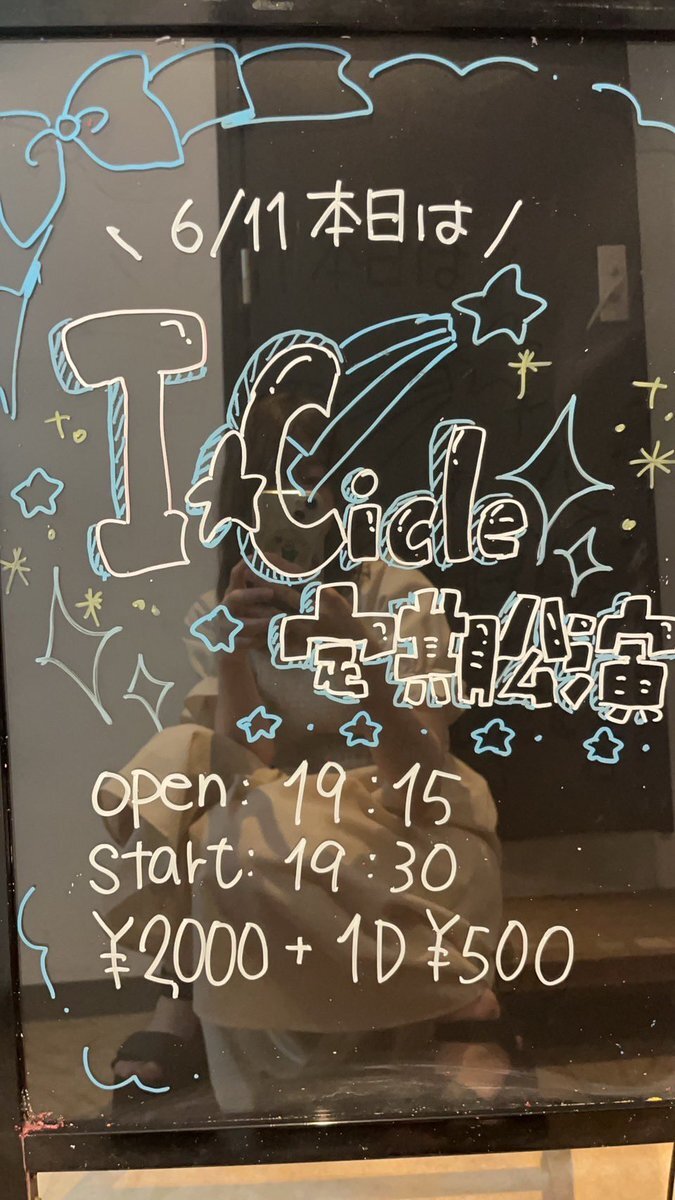 \ 6/11 本日は /
I☆Cicle
定期公演
open: 19:15
start: 19:30
¥2000 + 1D ¥500